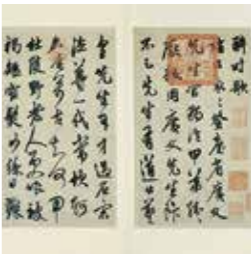 醉時歌
諸公衮衮登臺省廣文
先生官獨冷甲第紛紛
厭粱肉廣文先生飯
不足先生有道出羲
皇先生有才過屈宋
德尊一代常坎軻
名垂萬古知何用
杜陵野老人更嗤被
褐短窄鬢如絲日糴